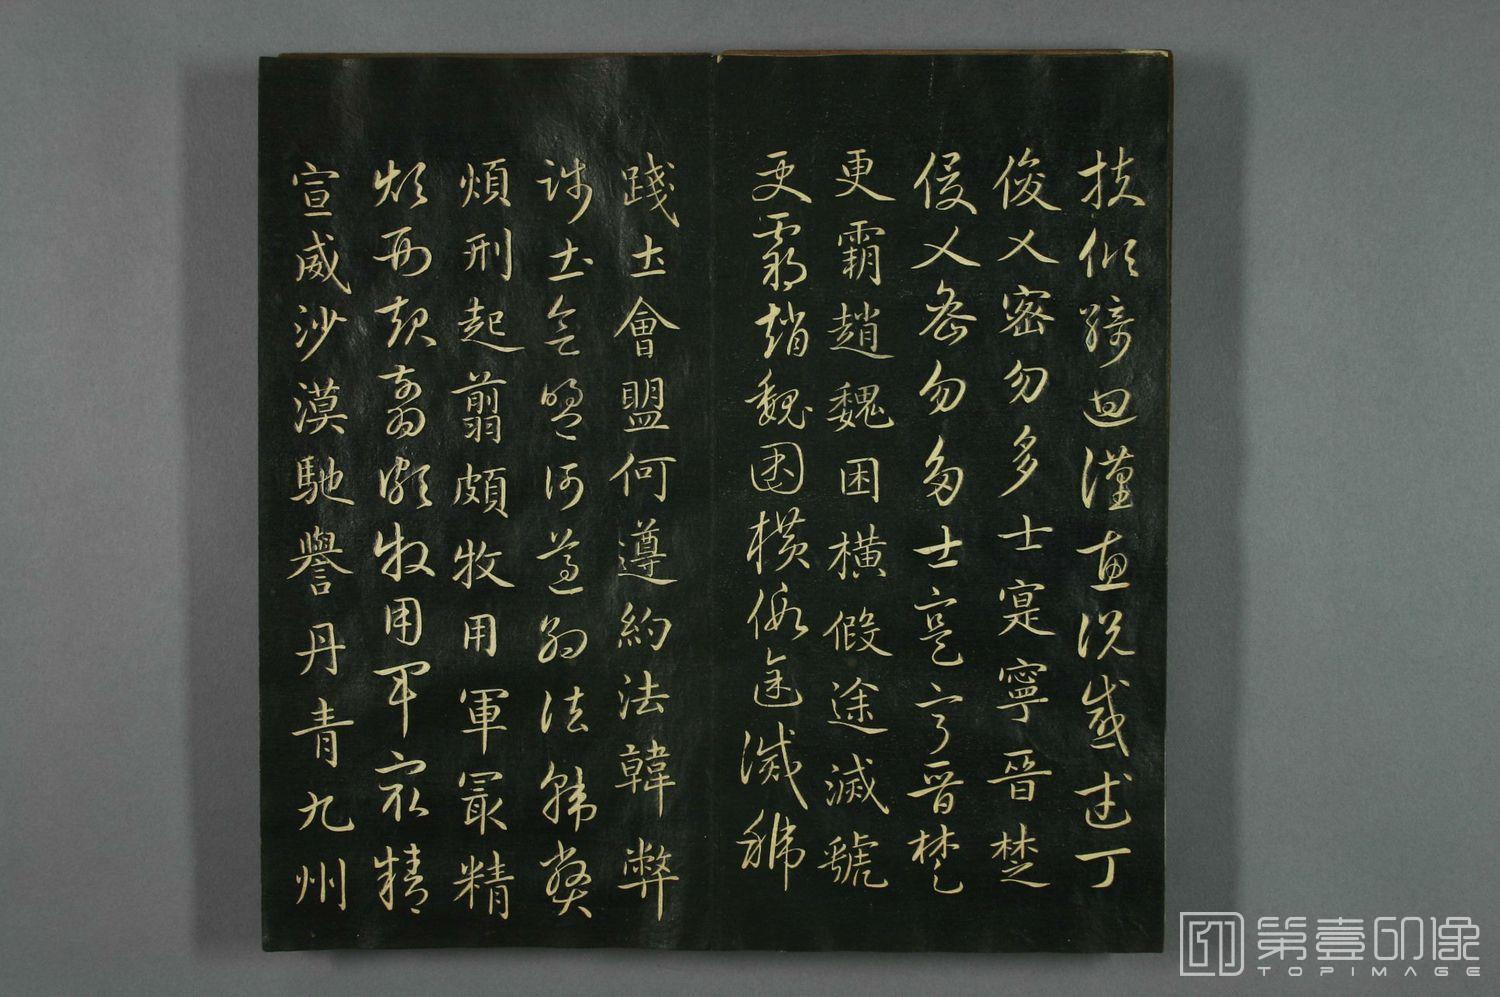 扶傾綺迴漢惠說感武丁
俊乂密勿多士寔寧晉楚
俊乂密勿多士寔寧晉楚
更霸趙魏困橫假途滅虢
更霸趙魏困橫假途滅虢
踐土會盟何遵約法韓弊
踐土會盟何遵約法韓弊
煩刑起翦頗牧用軍最精
煩刑起翦頗牧用軍最精
宣威沙漠馳譽丹青九州
第壹印像
TOPIMAGE